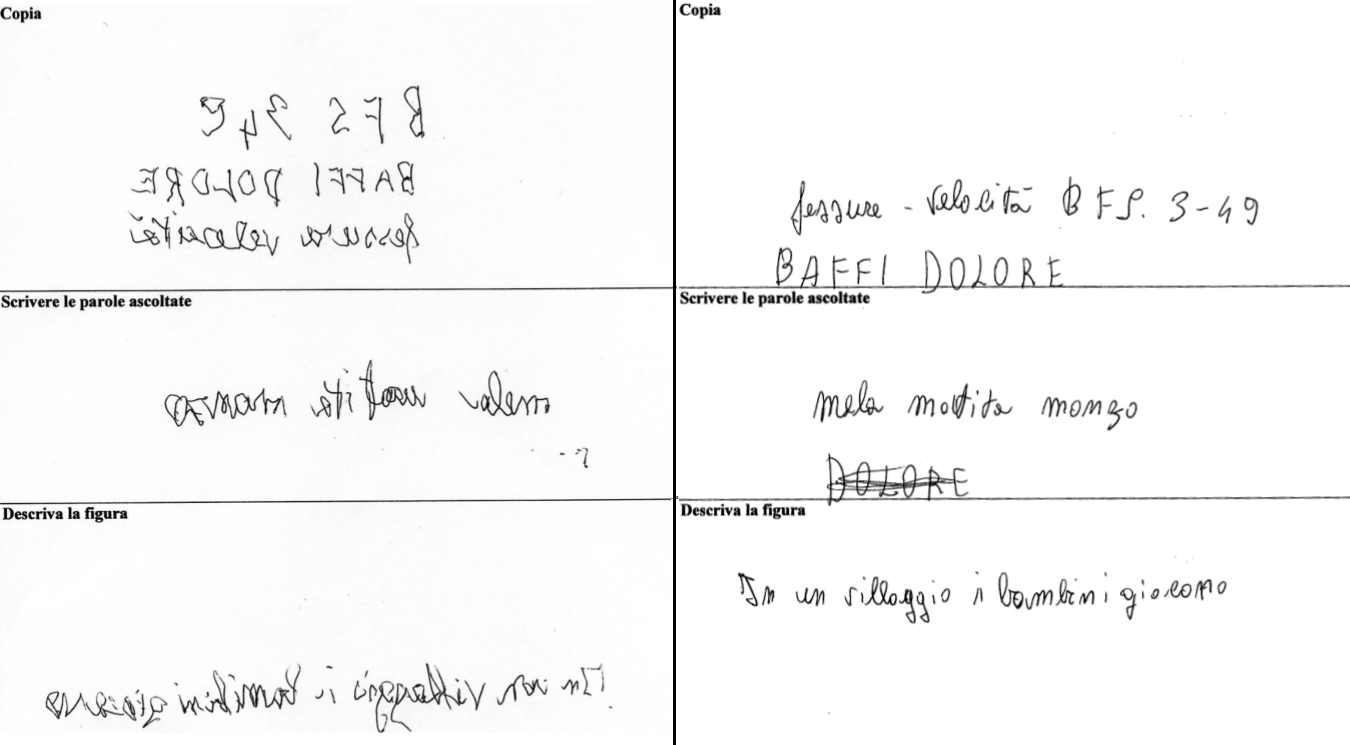 Copia
B F S 34 9
BAFFI DOLORE
fessura velocità
Scrivere le parole ascoltate
mela matita manzo
Descriva la figura
In un villaggio i bambini giocano
Copia
fessure - velocità B F S. 3-49
BAFFI DOLORE
Scrivere le parole ascoltate
mela matita monzo
DOLORE
Descriva la figura
In un villaggio i bambini giocono